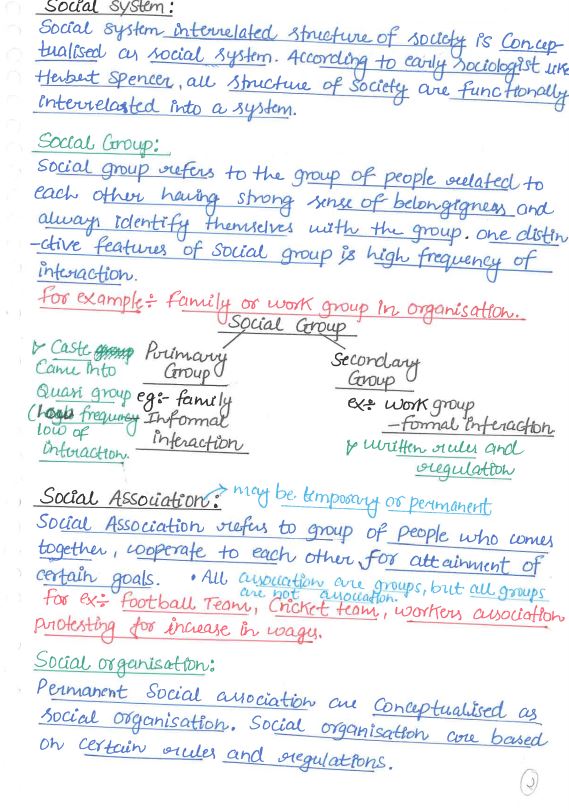 Social system:
Social system interrelated structure of society is Concep-
tualised as social system. According to early sociologist like
Herbert Spencer, all structure of Society are functionally
interrelasted into a system.
Social Group:
Social group refers to the group of people related to
each other having strong sense of belongigness and
always identify themselves with the group. one distin
-ctive features of Social group is high frequency of
interaction.
For example:- Family or work group in organisation.
Social Group
Primary
Group
eg:- family
Informal
interaction
Caste
Came into
Quasi group
( frequency
low of
interaction.
Secondary
Group
ex:- work group
-formal interaction
written rules and
regulation
Social Association:
may be temporary or permanent
Social Association refers to group of people who comes
together, cooperate to each other for attainment of
certain goals.
• All association are groups, but all groups
are not association.
For ex:- Football Team, Cricket team, workers association
protesting for increase in wages.
Social organisation:
Permanent Social association are Conceptualised as
social organisation. Social organisation are based
on certain rules and regulations.
2